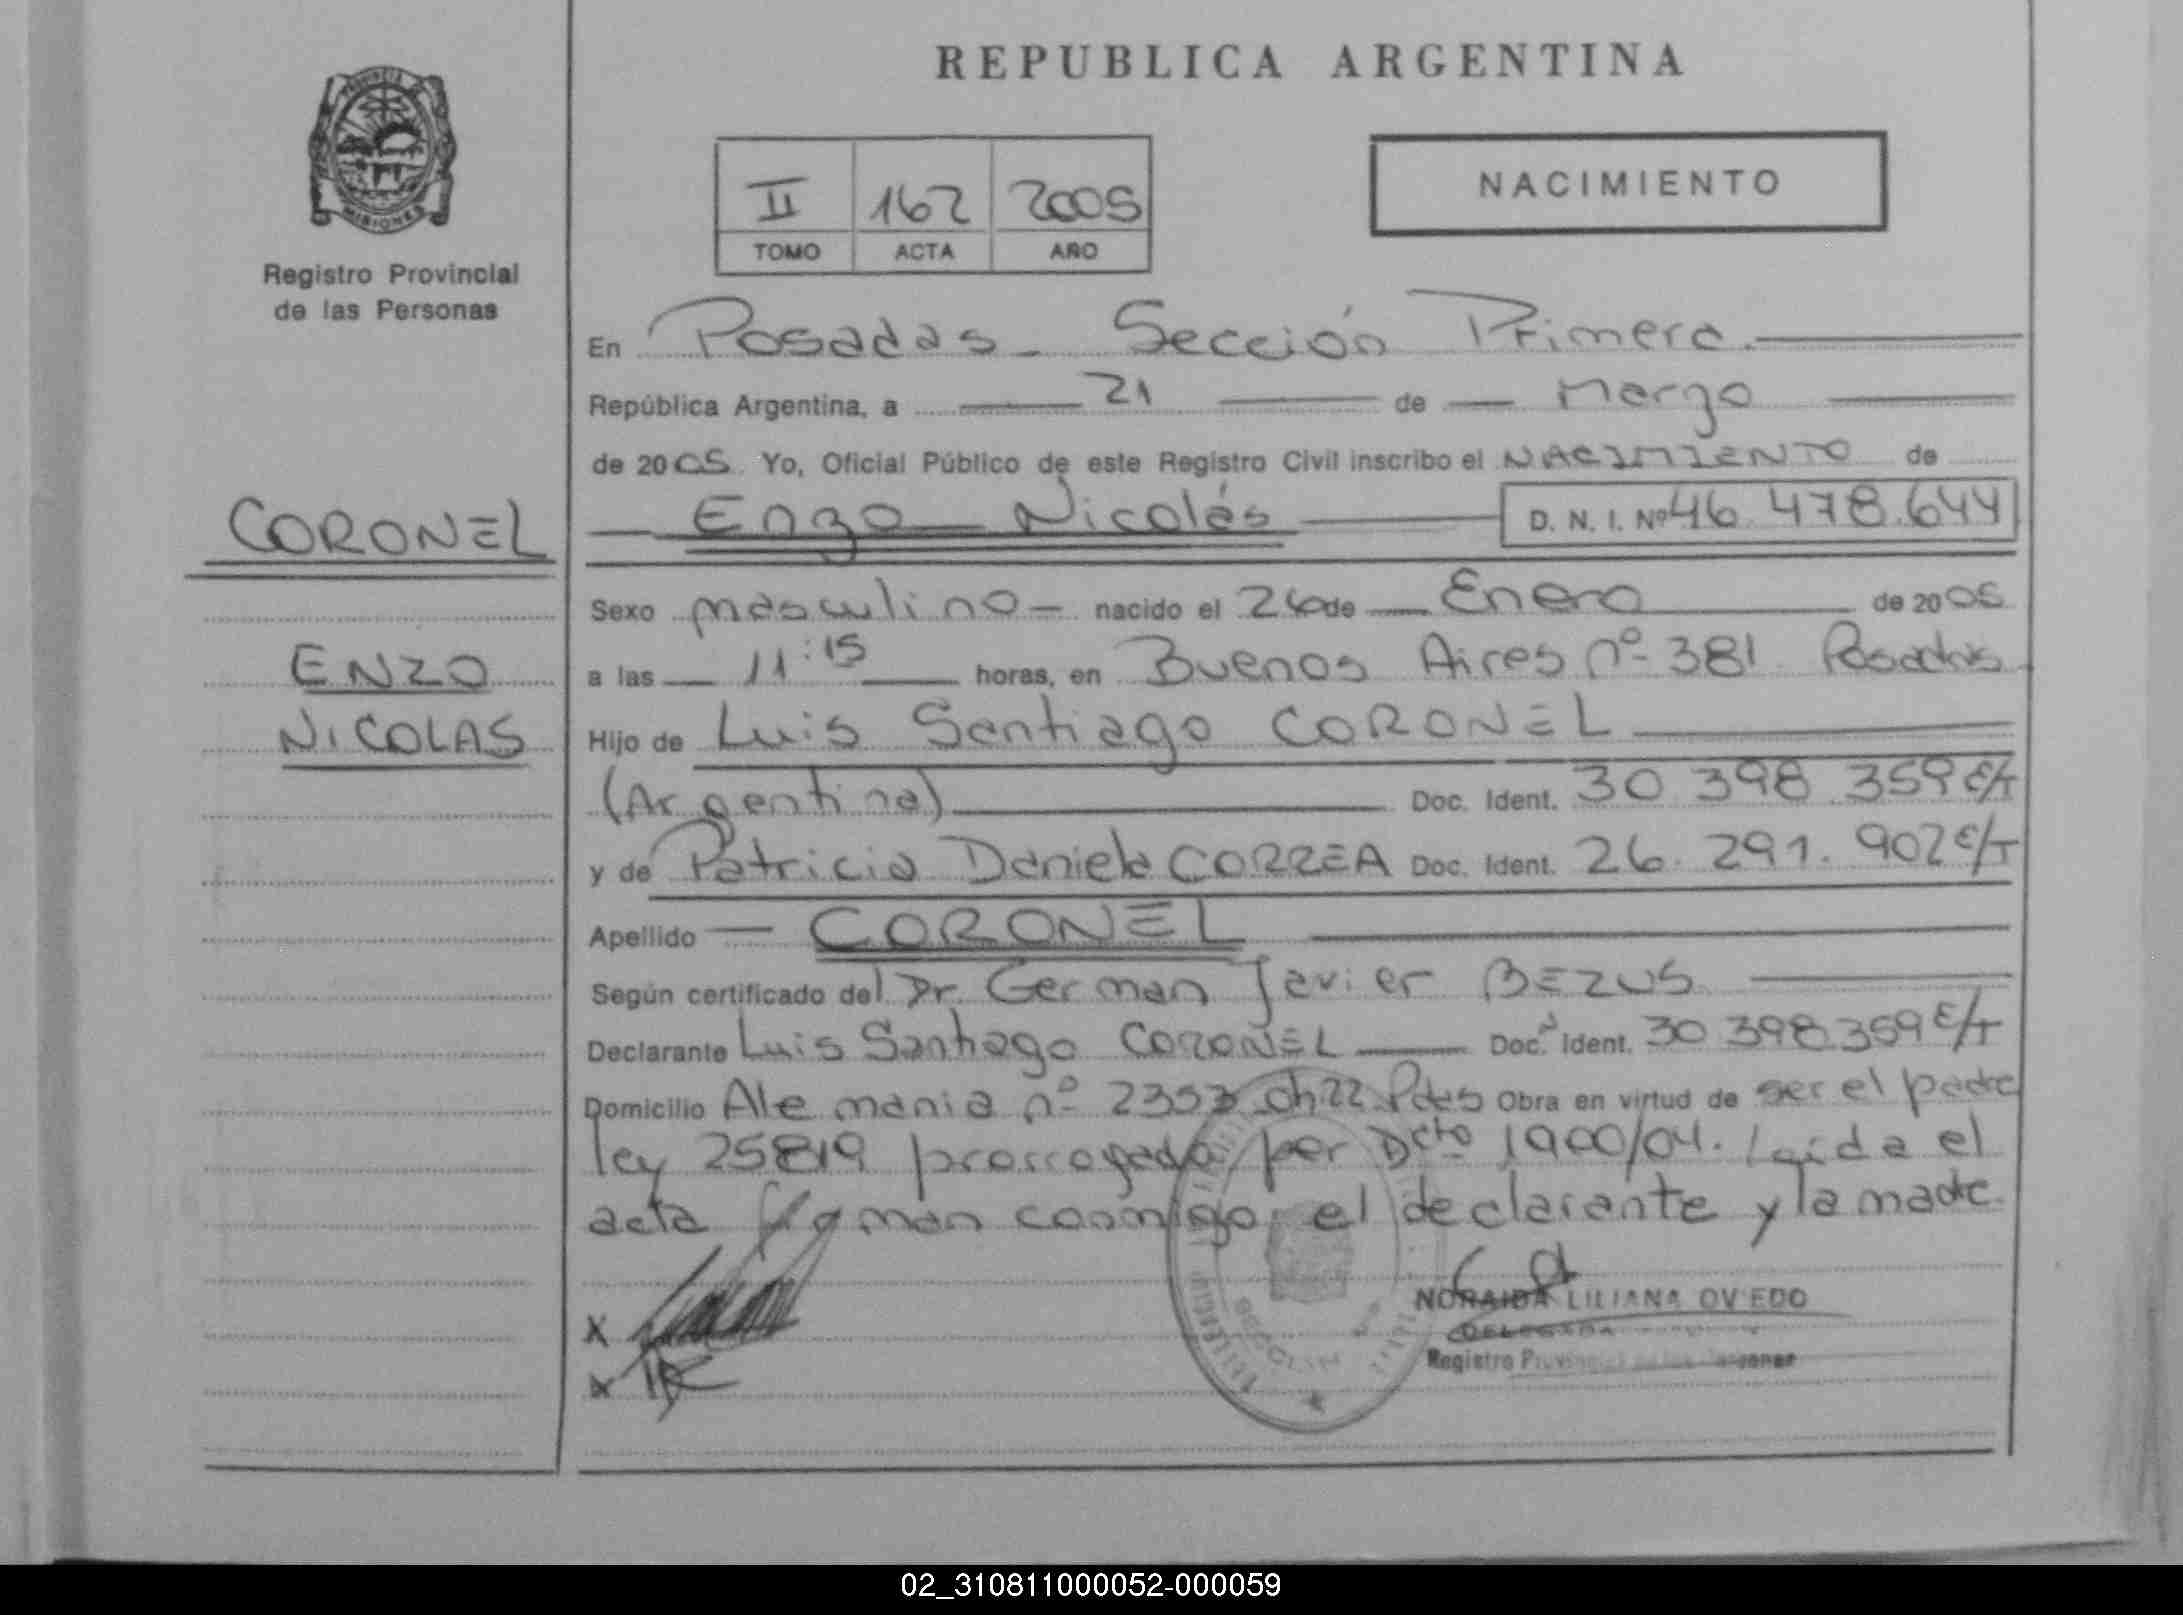 REPUBLICA ARGENTINA
PROVINCIA
MISIONES
Registro Provincial
de las Personas
II 162 2005
TOMO ACTA AÑO
NACIMIENTO
En Posadas - Sección Primera.
República Argentina, a 21 de Marzo
de 2005. Yo, Oficial Público de este Registro Civil inscribo el NACIMIENTO de
Enzo Nicolás D. N. I. Nº 46.478.644
CORONEL
ENZO
NICOLAS
Sexo masculino - nacido el 26 de Enero de 2005
a las 11:15 horas, en Buenos Aires nº 381 Posadas
Hijo de Luis Santiago CORONEL
(Argentina) Doc. Ident. 30 398 359 E/T
y de Patricia Daniela CORREA Doc. Ident. 26.291.902 E/T
Apellido CORONEL
Según certificado del Dr. German Javier BEZUS
Declarante Luis Santiago CORONEL Doc. Ident. 30 398.359 E/T
Domicilio Alemania nº 2353 ch 22 Pdas Obra en virtud de ser el padre
ley 25819 prorrogada por Dcto 1900/04. Leída el
acta firman conmigo el declarante y la madre.
NORAIDA LILIANA OVIEDO
DELEGADA
Registro Provincial de las Personas
02_310811000052-000059